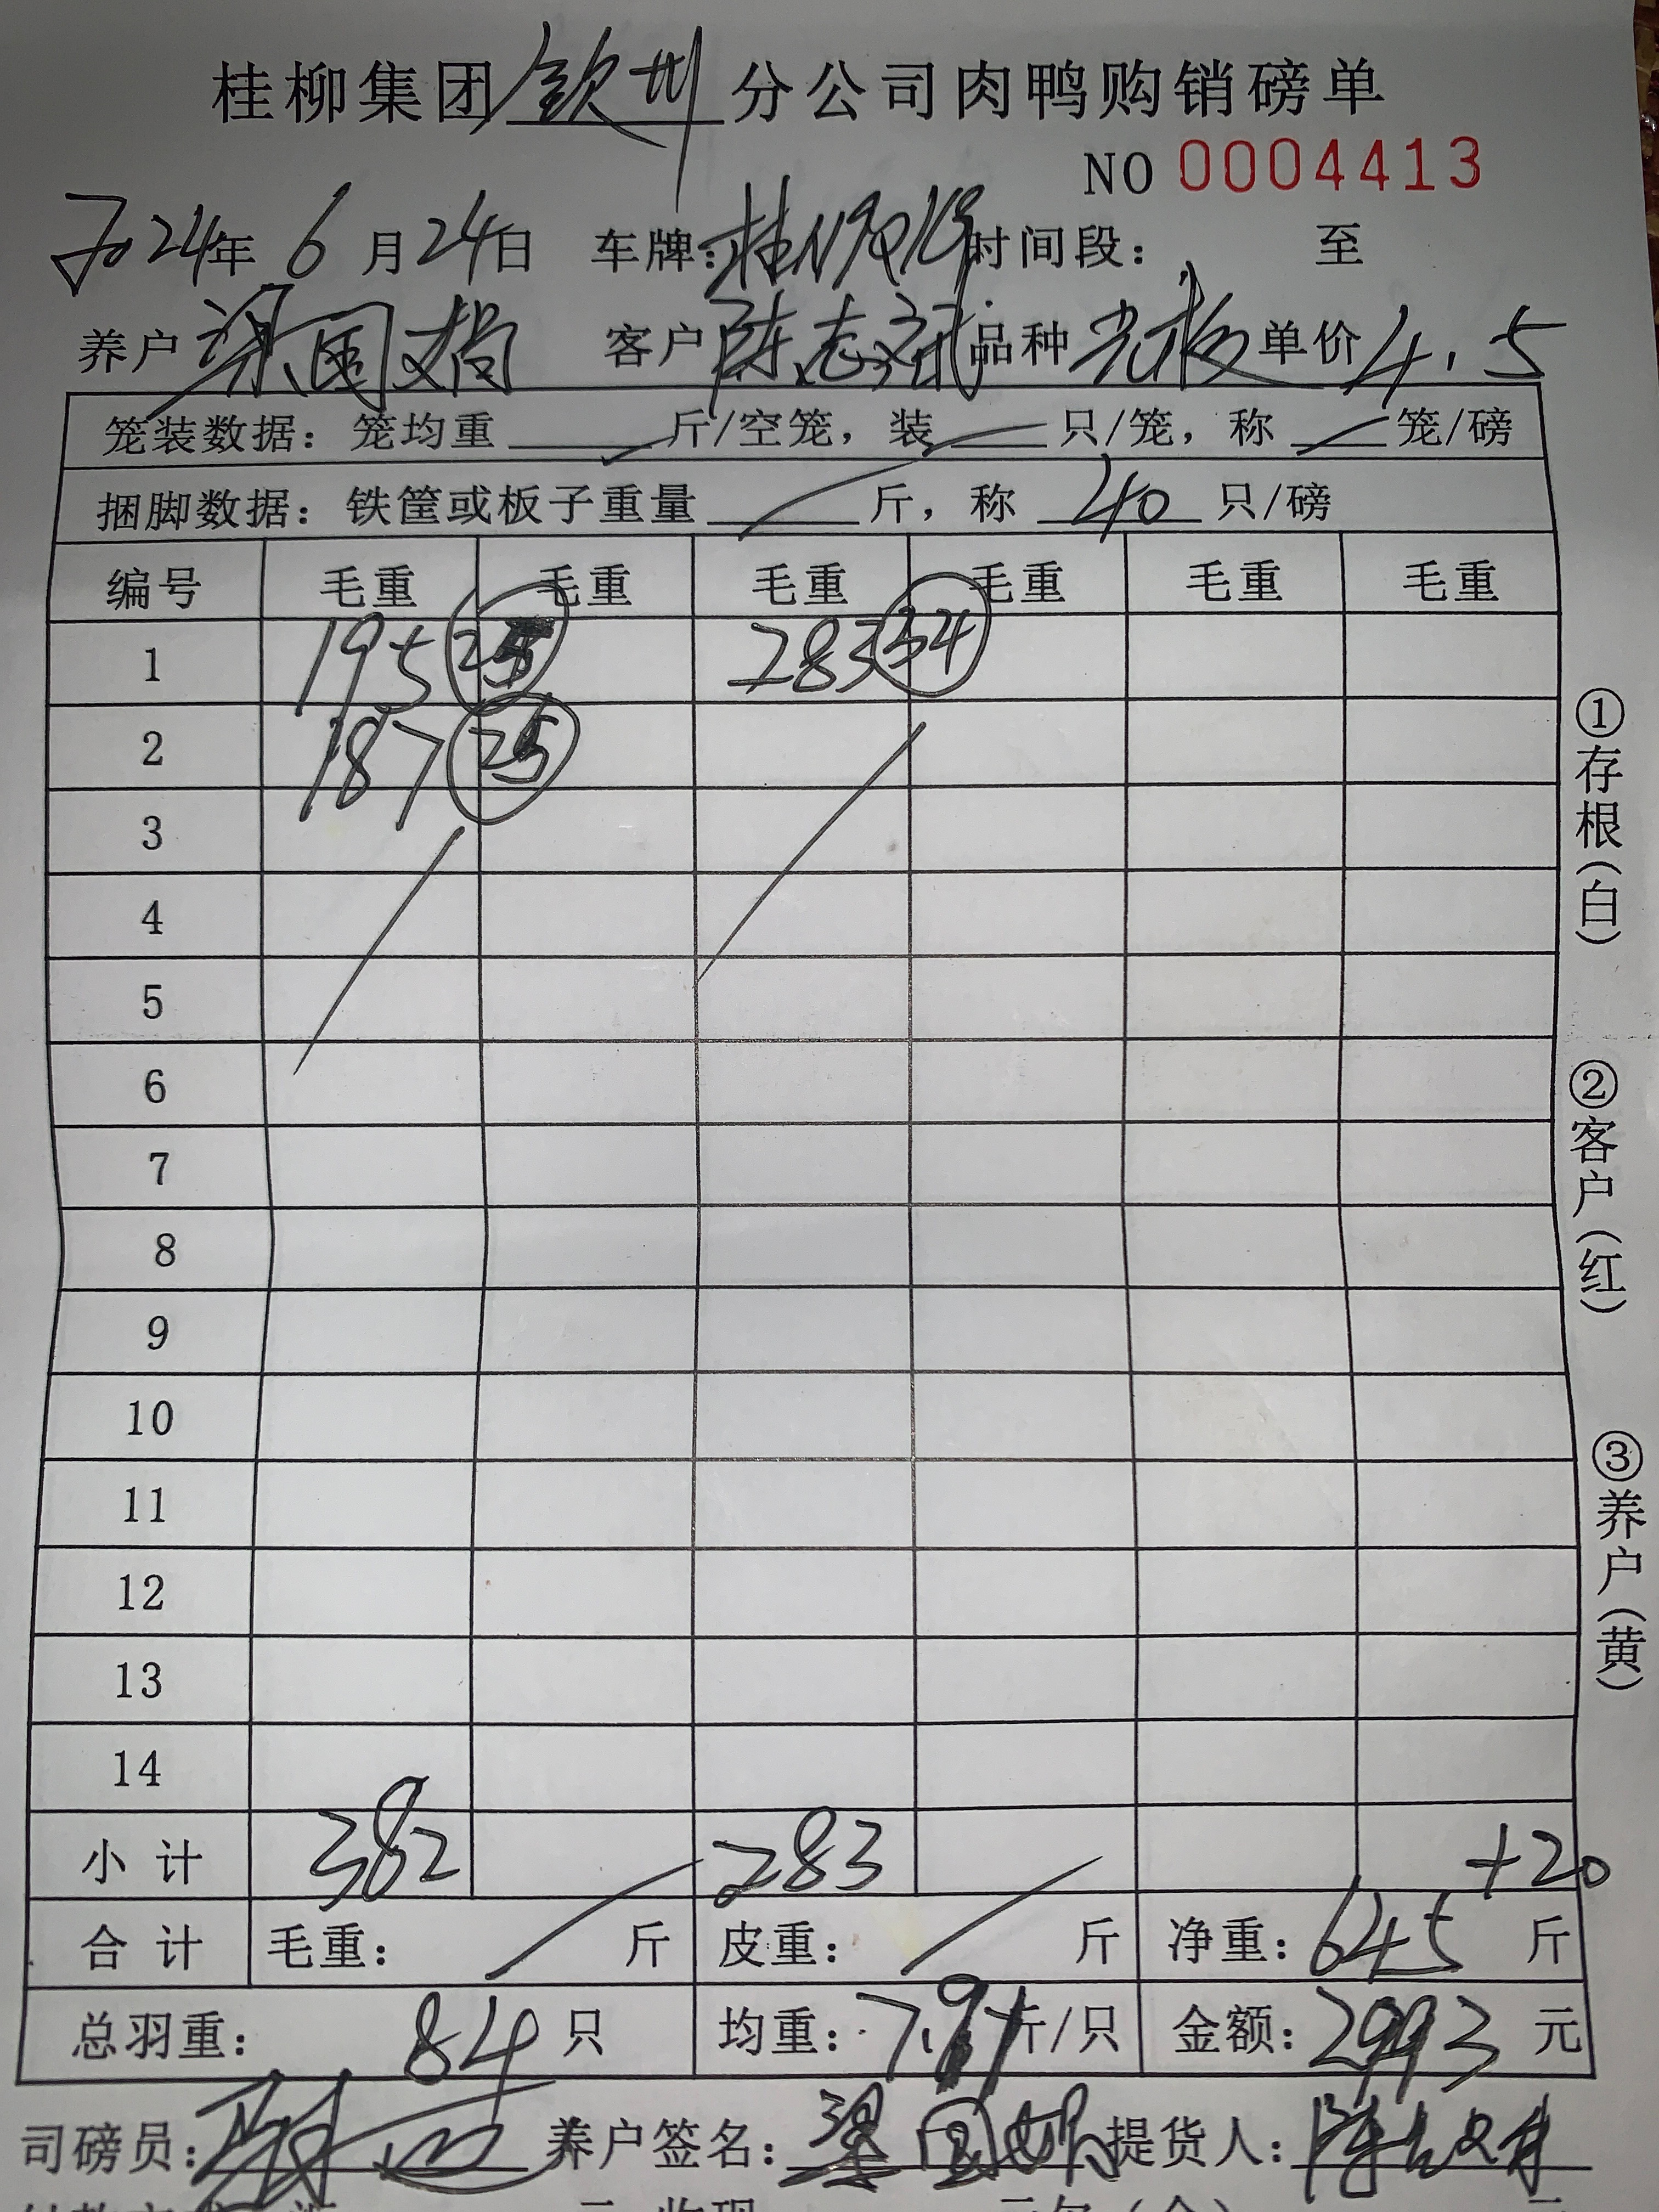 桂柳集团钦州分公司肉鸭购销磅单
NO 0004413
2024年 6 月 24日 车牌: 时间段: 至
养户 梁国 客户 陈志斌 品种 光板 单价 4.5
笼装数据: 笼均重 斤/空笼, 装 只/笼, 称 笼/磅
捆脚数据: 铁筐或板子重量 斤, 称 40 只/磅
编号 毛重 毛重 毛重 毛重 毛重 毛重
1 195 25 283 34
2 187 25
3
4
5
6
7
8
9
10
11
12
13
14
小计 382 283 +20
合计 毛重: 斤 皮重: 斤 净重: 645 斤
总羽重: 84 只 均重: 7.91斤/只 金额: 2993 元
司磅员: 养户签名: 梁国 提货人:
①存根(白)
②客户(红)
③养户(黄)